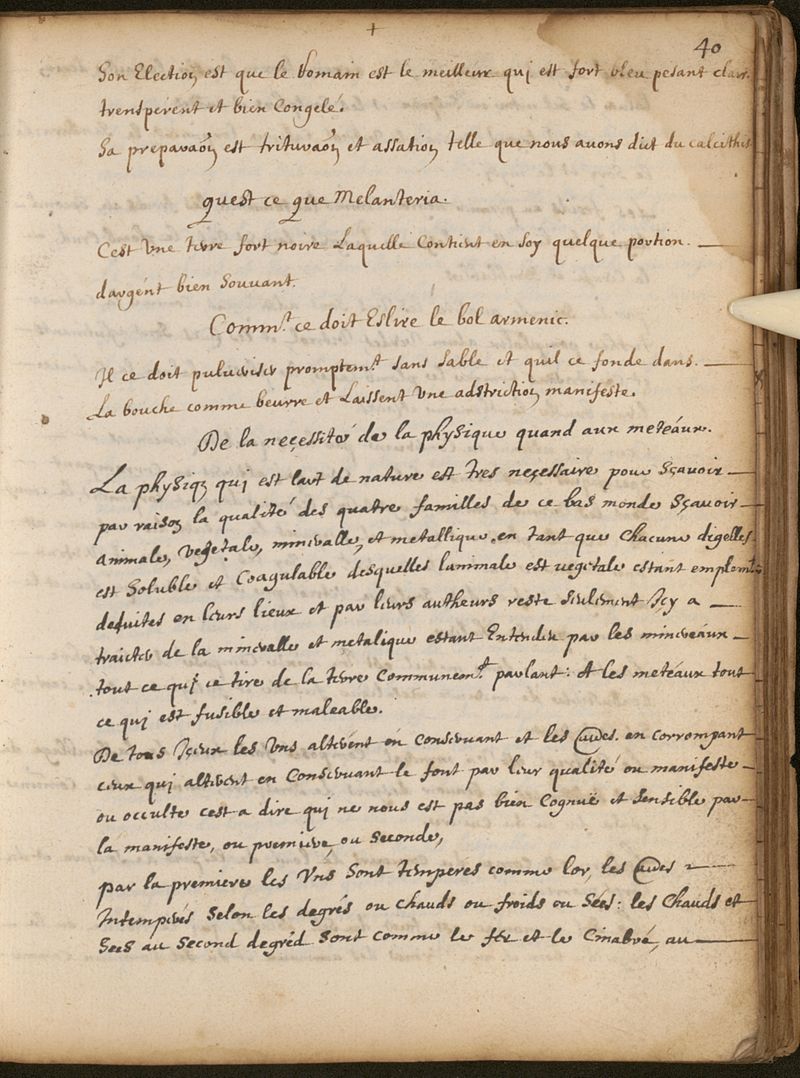 +
40
Son Election est que le Romain est le meilleur quj est fort bleu pesant clair.
trensperent et bien Congelé.
Sa preparaon est trituraon et assation telle que nous auons dict du calcithis
quest ce que Melanteria.
Cest Vne terre fort noire Laquelle Contient en soy quelque portion.
dargént bien Souuant.
Comm.t ce doit Eslire le bol armenic.
Il ce doit puluerisér promptem.t sans sable et quil ce fonde dans.
La bouche comme beurre et Laissent Vne adstriction manifeste.
De la neçessité de la physique quand aux meteáux.
La physiq quj est lart de nature est tres neçessaire pour sçauoir
par raison la qualité des quatre familles de ce bas monde sçauoir
animale, vegetale, minéralle, et metallique, en tant que chacune dicelles
est Soluble et Coagulable desquelles lanimale est vegetale estant emplem.t
deduites en leurs lieux et par leurs autheurs reste seulement Icy a
traicter de la mineralle et metalique estant Entendeu par les mineráux
tout ce quj ce tire de la terre Communem.t parlant: Et les meteáux tout
ce quj est fusible et maleable.
De tous Iceux les Vns alterent en conseruant et les autres en corrompant
ceux qui alterent en Conseruant le font par leur qualité ou manifeste
ou occulte cest a dire qui ne nous est pas bien Cognuë et Sensible par
la manifeste, ou premiere, ou Seconde,
par la premiere les Vns sont temperes comme lor, les autres
Intemperés Selon les degrés ou chauds ou froids ou Sées: les Chauds et
Sées au second degréd sont comme le fer et le Cinabré, au